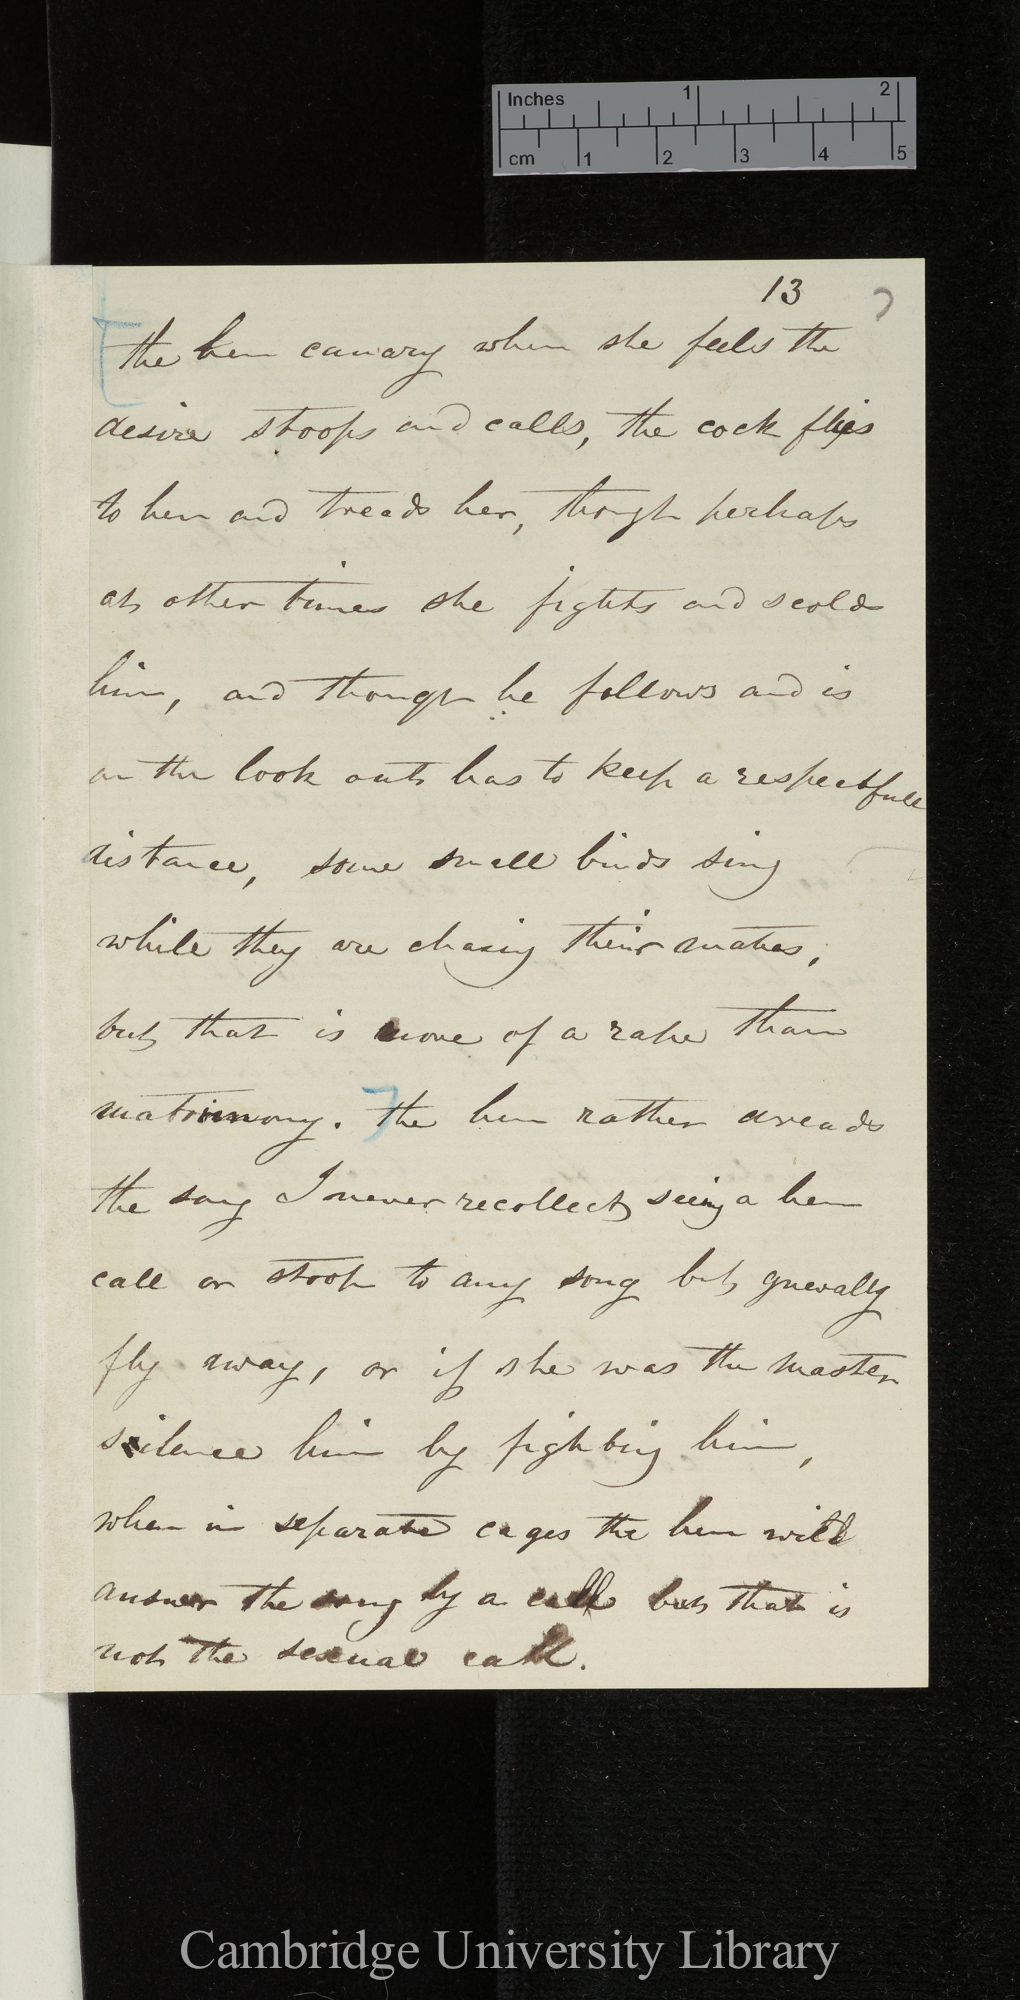 Inches 1 2
cm 1 2 3 4 5
13
the hen canary when she feels the
desire stoops and calls, the cock flies
to her and treads her, though perhaps
at other times she fights and scolds
him, and though he follows and is
on the look out has to keep a respectfull
distance, some small birds sing
while they are chasing their mates,
but that is more of a rape than
matrimony. the hen rather dreads
the song I never recollect seeing a hen
call or stoop to any song but generally
fly away, or if she was the master
silence him by fighting him,
when in separate cages the hen will
answer the song by a call but that is
not the sexual call.
Cambridge University Library